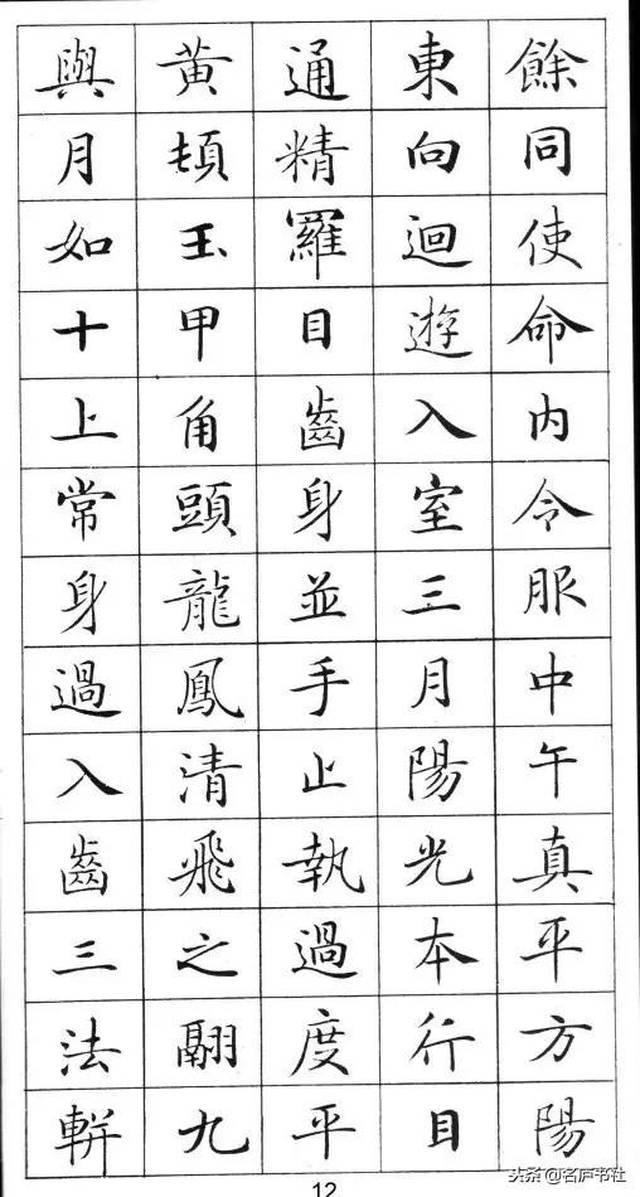 餘同使命内令服中午真平方陽
東向迴遊入室三月陽光本行目
通精羅目齒身並手止執過度平
黄頓玉甲角頭龍鳳清飛之翮九
與月如十上常身過入齒三法輧
12
头条@名庐书社